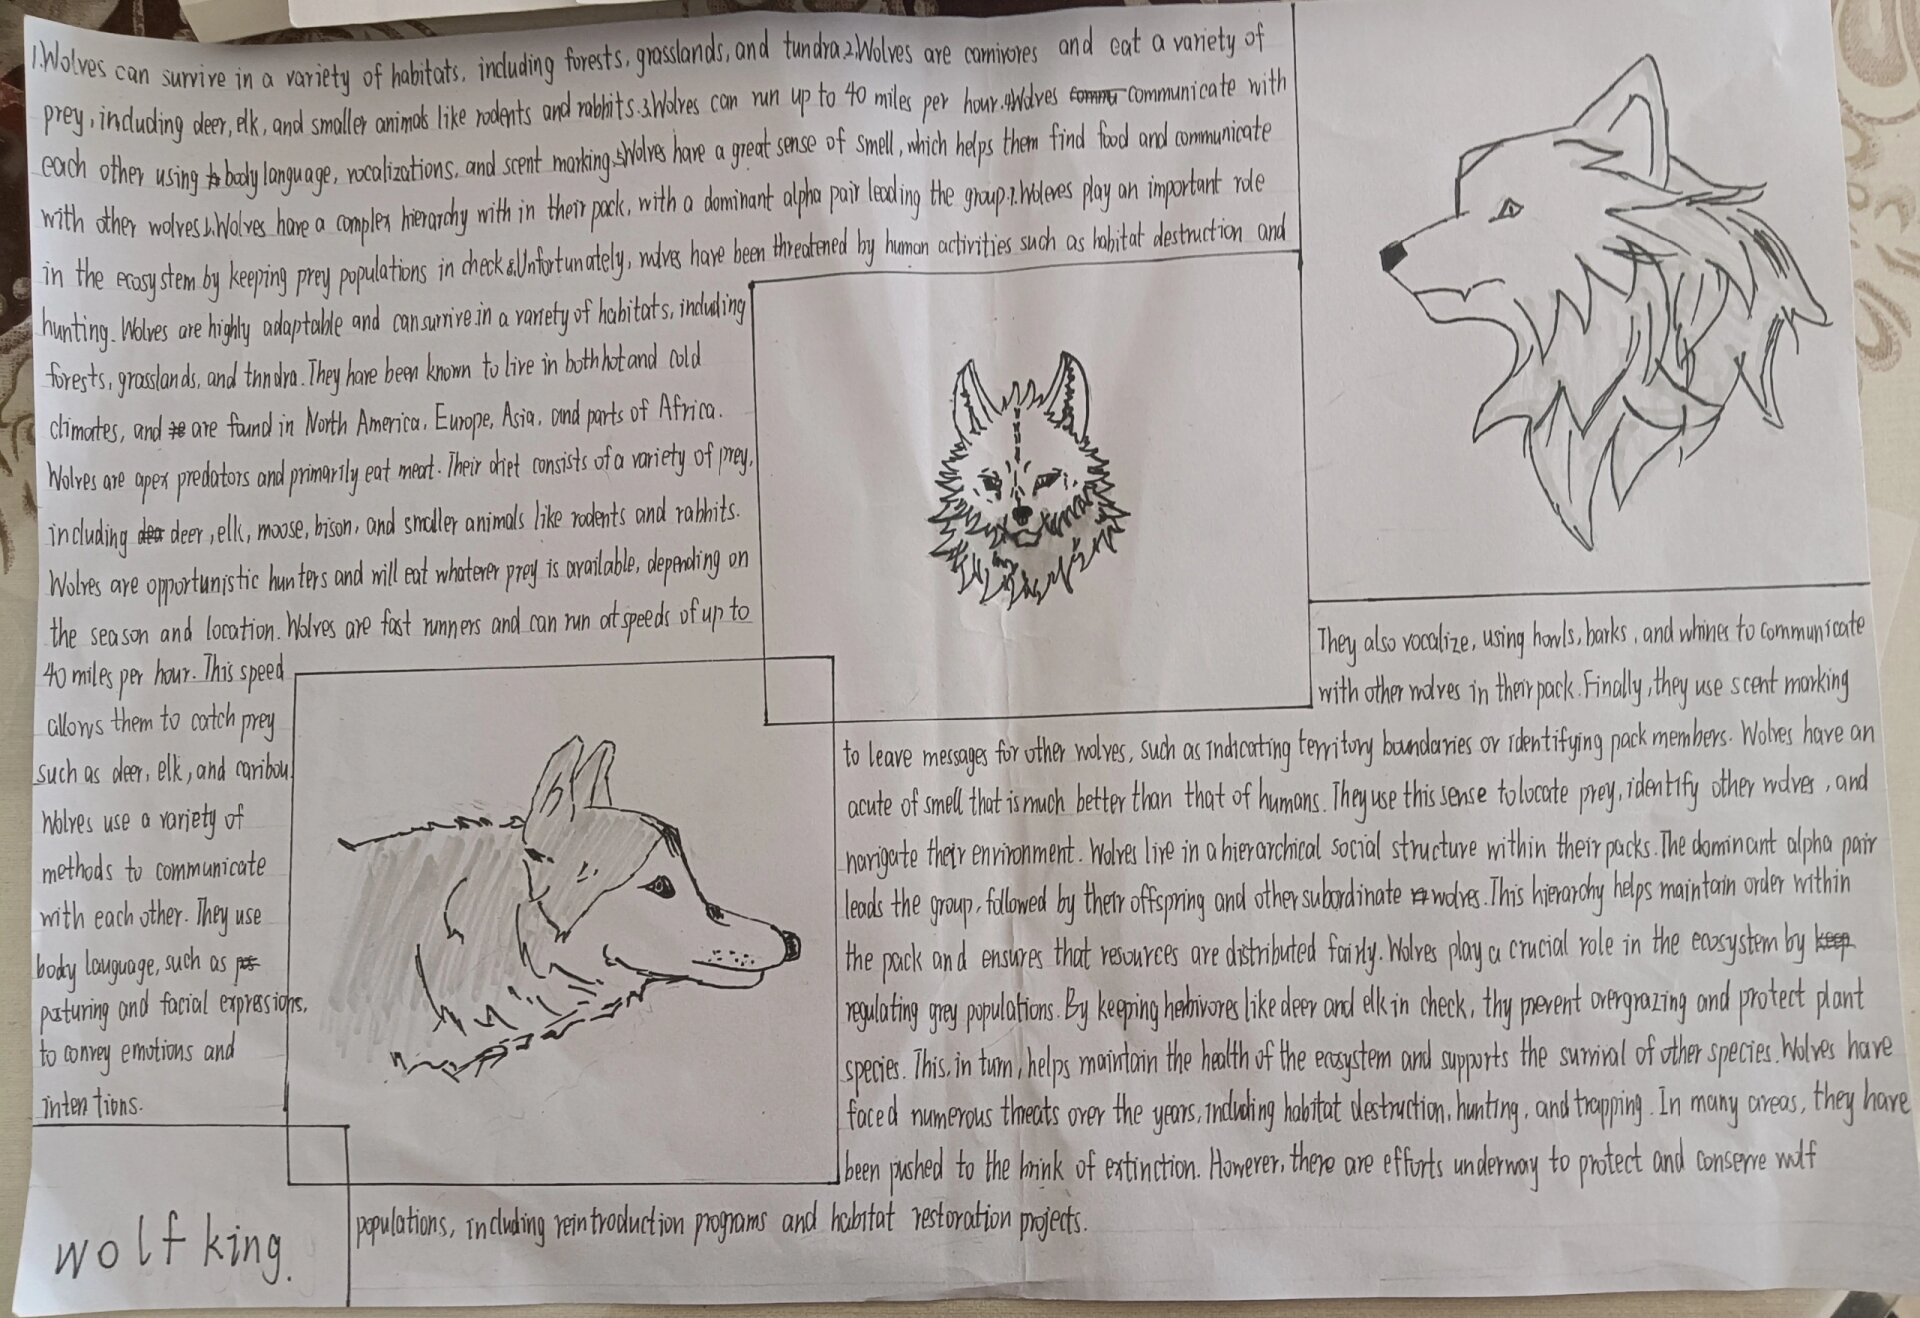 1.Wolves can survive in a variety of habitats, including forests, grasslands, and tundra.2.Wolves are carnivores and eat a variety of
prey, including deer, elk, and smaller animals like rodents and rabbits.3.Wolves can run up to 40 miles per hour.4.Wolves commu communicate with
each other using body language, vocalizations, and scent marking.5.Wolves have a great sense of smell, which helps them find food and communicate
with other wolves.6.Wolves have a complex hierarchy with in their pack, with a dominant alpha pair leading the group.7.Woleves play an important role
in the ecosystem by keeping prey populations in check.8.Unfortunately, wolves have been threatened by human activities such as habitat destruction and
hunting. Wolves are highly adaptable and can survive in a variety of habitats, including
forests, grasslands, and tnndra. They have been known to live in both hot and cold
climates, and are found in North America, Europe, Asia, and parts of Africa.
Wolves are apex predators and primarily eat meat. Their diet consists of a variety of prey,
including dea deer, elk, moose, bison, and smaller animals like rodents and rabbits.
Wolves are opportunistic hunters and will eat whatever prey is available, depending on
the season and location. Wolves are fast runners and can run at speeds of up to
40 miles per hour. This speed
allows them to catch prey
such as deer, elk, and caribou.
Wolves use a variety of
methods to communicate
with each other. They use
body language, such as pos
posturing and facial expressions,
to convey emotions and
intentions.
They also vocalize, using howls, barks, and whines to communicate
with other wolves in their pack. Finally, they use scent marking
to leave messages for other wolves, such as indicating territory boundaries or identifying pack members. Wolves have an
acute of smell that is much better than that of humans. They use this sense to locate prey, identify other wolves, and
navigate their environment. Wolves live in a hierarchical social structure within their packs. The dominant alpha pair
leads the group, followed by their offspring and other subordinate wolves. This hierarchy helps maintain order within
the pack and ensures that resources are distributed fairly. Wolves play a crucial role in the ecosystem by keep
regulating grey populations. By keeping herbivores like deer and elk in check, thy prevent overgrazing and protect plant
species. This, in turn, helps maintain the health of the ecosystem and supports the survival of other species. Wolves have
faced numerous threats over the years, including habitat destruction, hunting, and trapping. In many areas, they have
been pushed to the brink of extinction. However, there are efforts underway to protect and conserve wolf
populations, including reintroduction programs and habitat restoration projects.
wolf king.